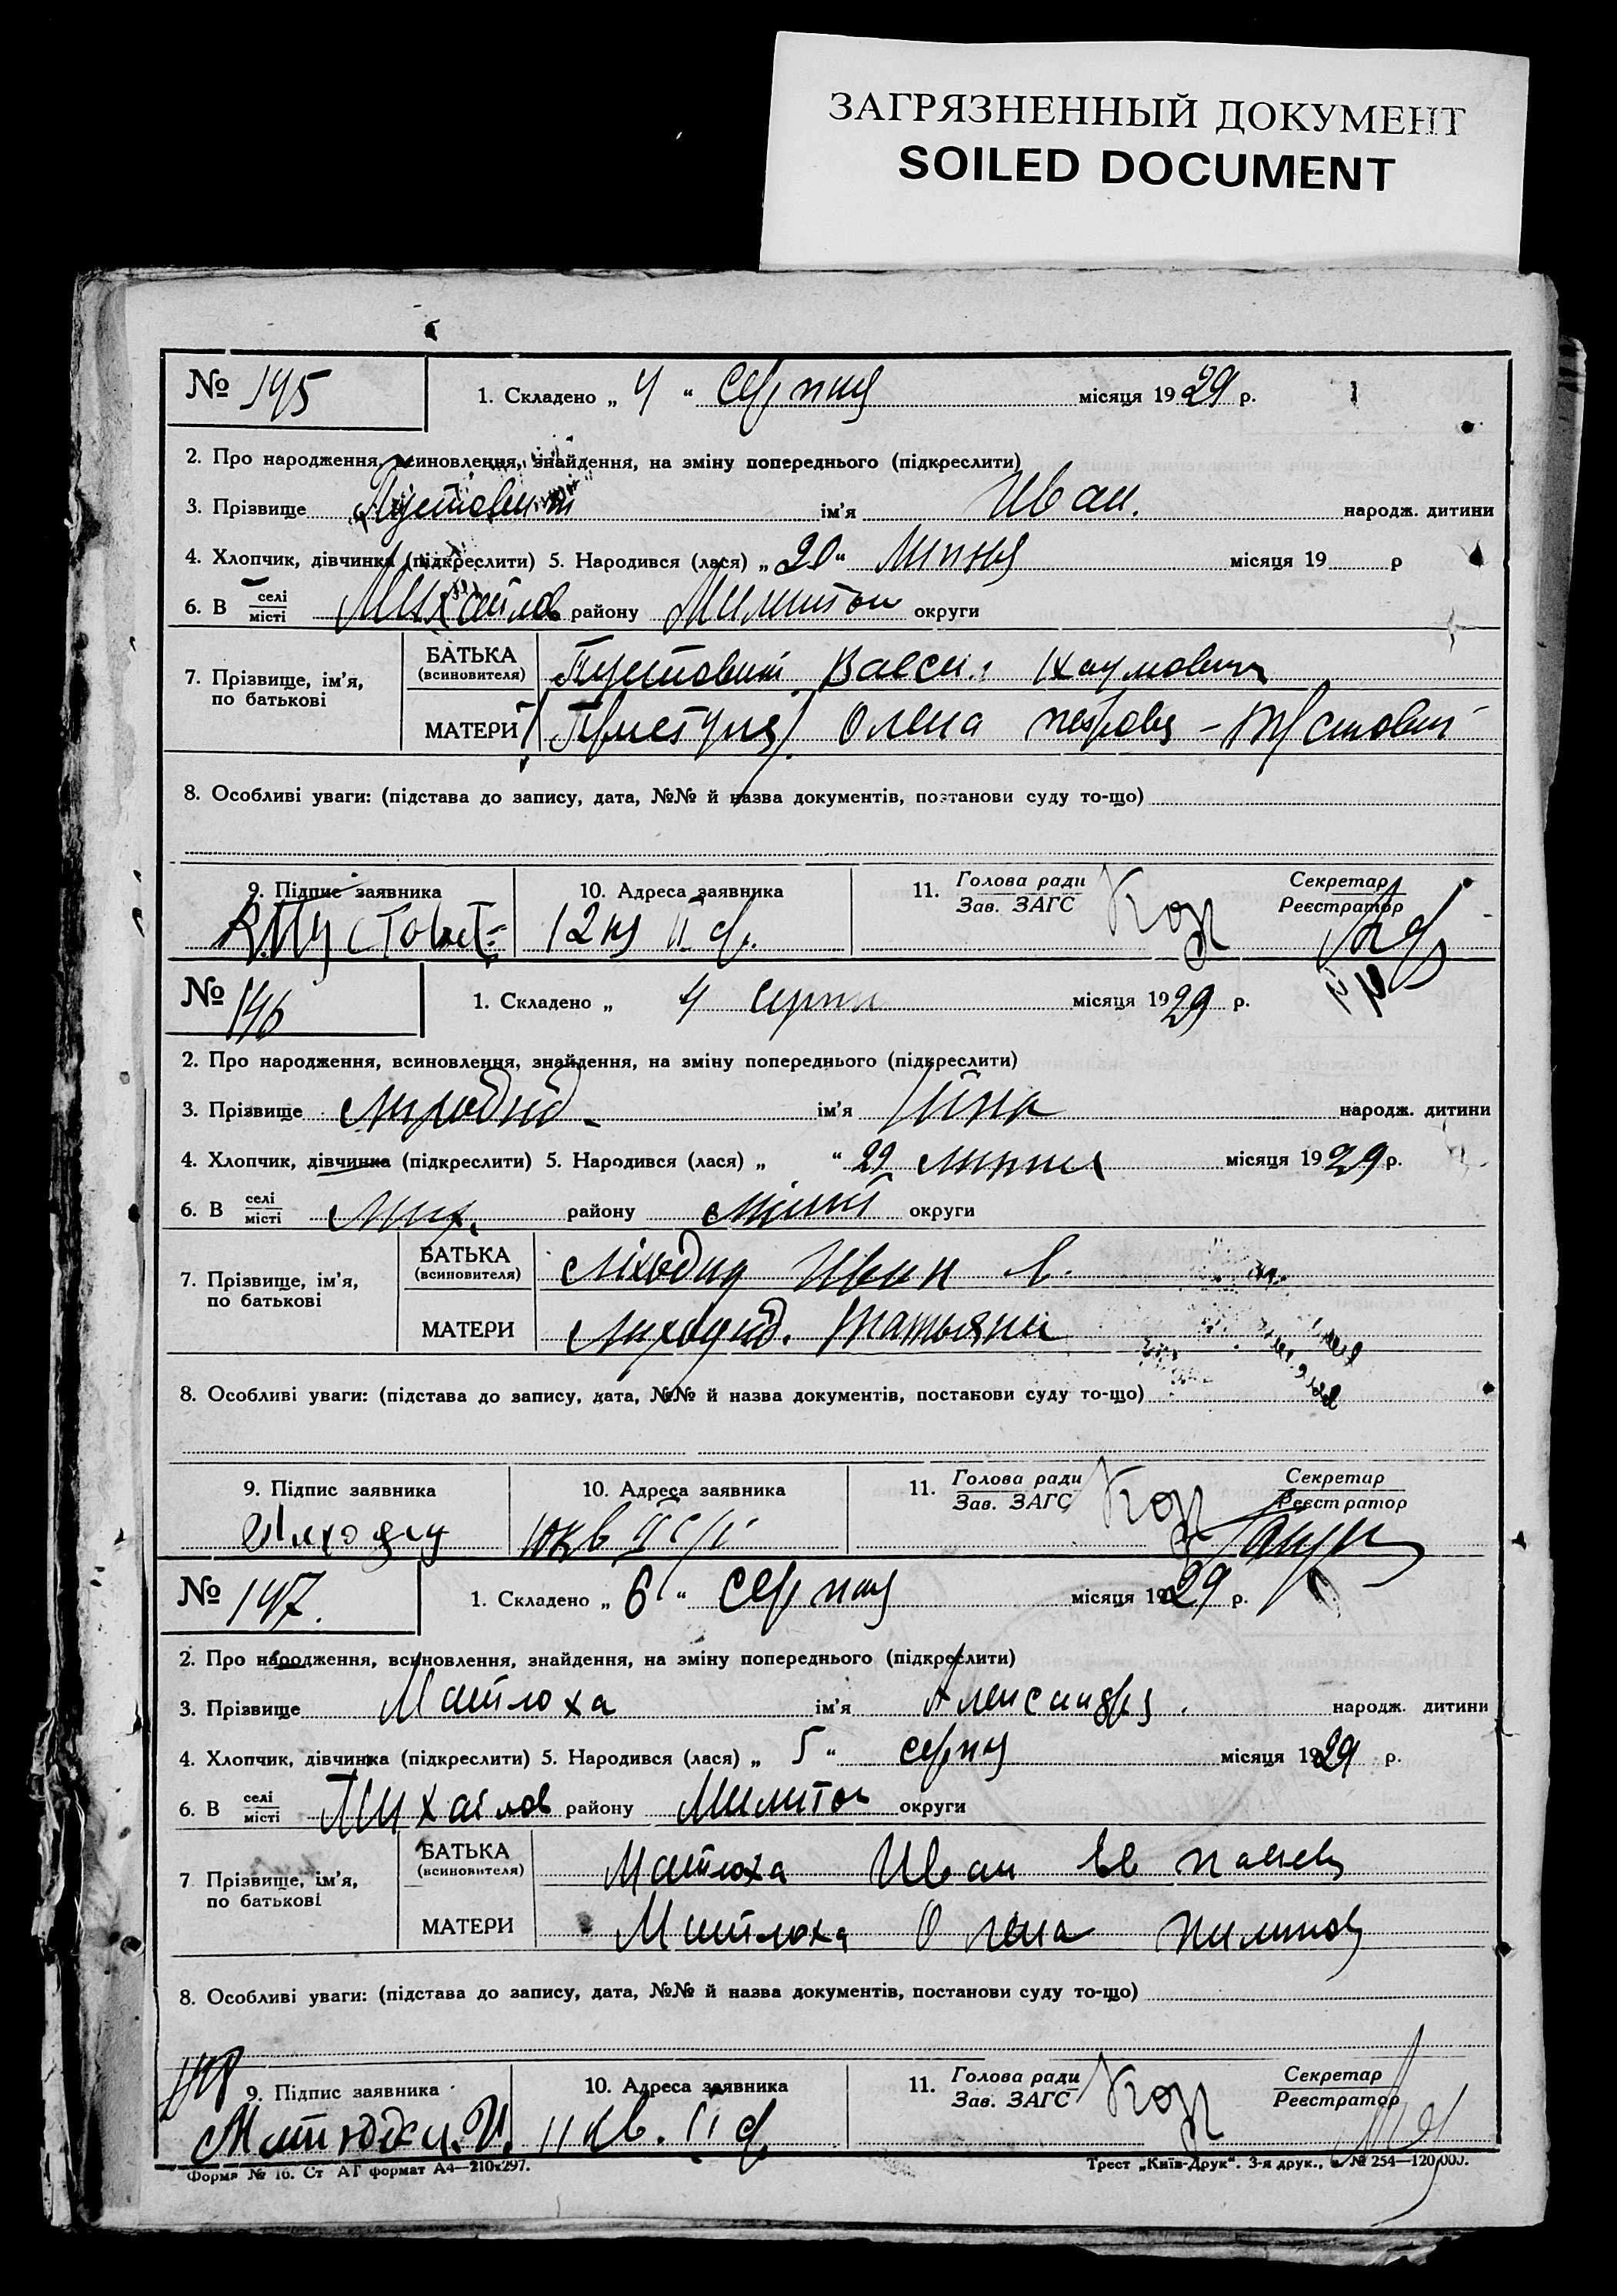 ЗАГРЯЗНЕННЫЙ ДОКУМЕНТ
SOILED DOCUMENT
№ 145 1. Складено „ 4 “ серпня місяця 1929 р.
2. Про народження, всиновлення, знайдення, на зміну попереднього (підкреслити)
3. Прізвище Пустовит ім'я Иван. народж. дитини
4. Хлопчик, дівчинка (підкреслити) 5. Народився (лася) „ 20 “ липня місяця 19 р
6. В селі місті Михайлов району Мелитоп округи
7. Прізвище, ім'я, по батькові
БАТЬКА (всиновителя) Пустовит Васил Наумович
МАТЕРИ Олена петровa - Пустовит
8. Особливі уваги: (підстава до запису, дата, №№ й назва документів, постанови суду то-що)
9. Підпис заявника 10. Адреса заявника 11. Голова ради Зав. ЗАГС Секретар Реєстратор
В. Пустовит
№ 146 1. Складено „ 4 серпн місяця 1929 р.
2. Про народження, всиновлення, знайдення, на зміну попереднього (підкреслити)
3. Прізвище Лиходид ім'я Ніна народж. дитини
4. Хлопчик, дівчинка (підкреслити) 5. Народився (лася) „ “ 22 липня місяця 1929 р.
6. В селі місті Мих. району Меліт округи
7. Прізвище, ім'я, по батькові
БАТЬКА (всиновителя) Ліходид Иван
МАТЕРИ Лиходид. Татьяна
8. Особливі уваги: (підстава до запису, дата, №№ й назва документів, постанови суду то-що)
9. Підпис заявника 10. Адреса заявника 11. Голова ради Зав. ЗАГС Секретар Реєстратор
№ 147. 1. Складено „ 6 “ серпня місяця 1929 р.
2. Про народження, всиновлення, знайдення, на зміну попереднього (підкреслити)
3. Прізвище Матюха ім'я Александра народж. дитини
4. Хлопчик, дівчинка (підкреслити) 5. Народився (лася) „ 5 “ серпня місяця 1929 р.
6. В селі місті Михайлов району Мелитоп округи
7 Прізвище, ім'я, по батькові
БАТЬКА (всиновителя) Матюха Иван
МАТЕРИ Матюха Олена
8. Особливі уваги: (підстава до запису, дата, №№ й назва документів, постанови суду то-що)
9. Підпис заявника 10. Адреса заявника 11. Голова ради Зав. ЗАГС Секретар Реєстратор
11 кв.
Форма № 16. Ст АГ формат А4—210х297. Трест „Київ-Друк“. 3-я друк., № 254—120.000.